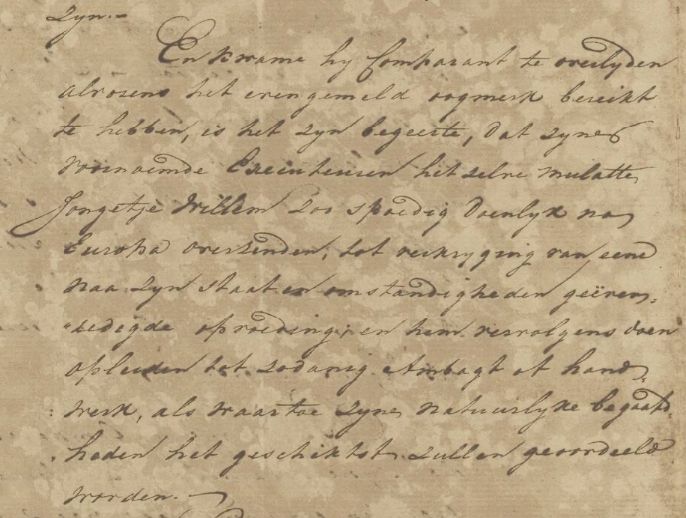 Zyn. –
En kwame hy Comparant te overlyden
alvorens het evengemeld oogmerk bereikt
te hebben, is het zyn begeerte, dat zyne
voornoemde Executeuren het zelve mulatte
Jongetje Willem zoo spoedig doenlyk na
Europa overzenden, tot verkryging van eene
naa zyn staat en omstandigheden geëven„
„redigde opvoeding, en hem vervolgens doen
opleiden tot zodanig Ambagt of hand„
werk, als waartoe zyne natuurlyke begaafd„
heden het geschiktst zullen geoordeeld
worden. –